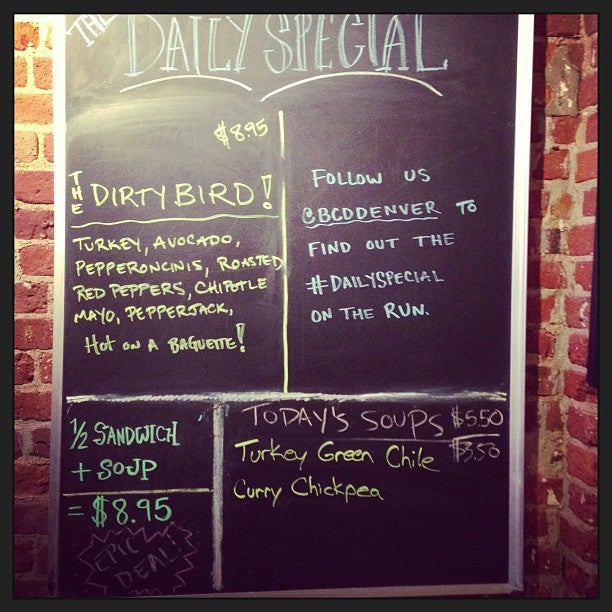 THE
DAILY SPECIAL
$8.95
THE DIRTY BIRD!
TURKEY, AVOCADO,
PEPPERONCINIS, ROASTED
RED PEPPERS, CHIPOTLE
MAYO, PEPPERJACK,
HOT ON A BAGUETTE!
FOLLOW US
@BCDDENVER TO
FIND OUT THE
#DAILYSPECIAL
ON THE RUN.
1/2 SANDWICH
+ SOUP
= $8.95
EPIC
DEAL!
TODAY'S SOUPS $5.50
$3.50
Turkey Green Chile
Curry Chickpea